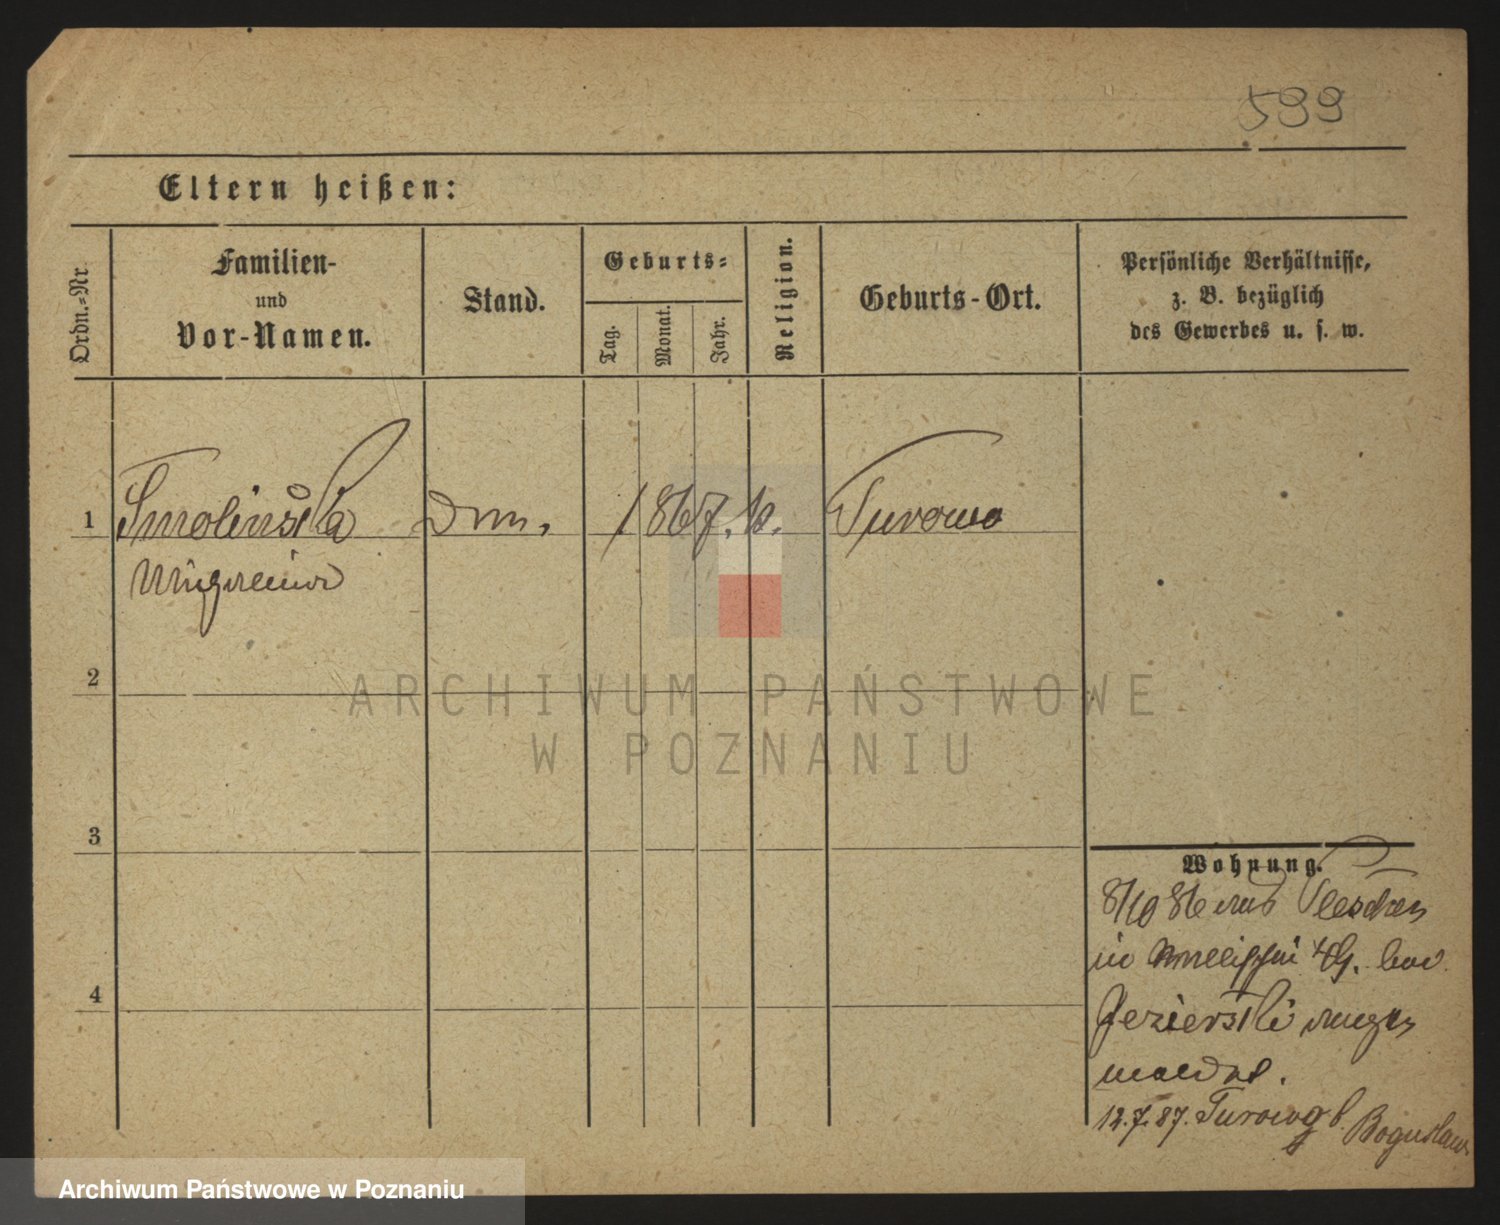 599
Eltern heißen:
Ordn.=Nr.
Familien-
und
Vor-Namen.
Stand.
Geburts=
Tag.
Monat.
Jahr.
Religion.
Geburts-Ort.
Persönliche Verhältnisse,
z. B. bezüglich
des Gewerbes u. s. w.
1
Smolinska
1867. k.
Turowo
2
ARCHIWUM PAŃSTWOWE
W POZNANIU
3
Wohnung.
8/10 86 aus Pleschen
in bei
Jezierski ange
meldet.
4
12.7.87. Turowo Boguslaw
Archiwum Państwowe w Poznaniu